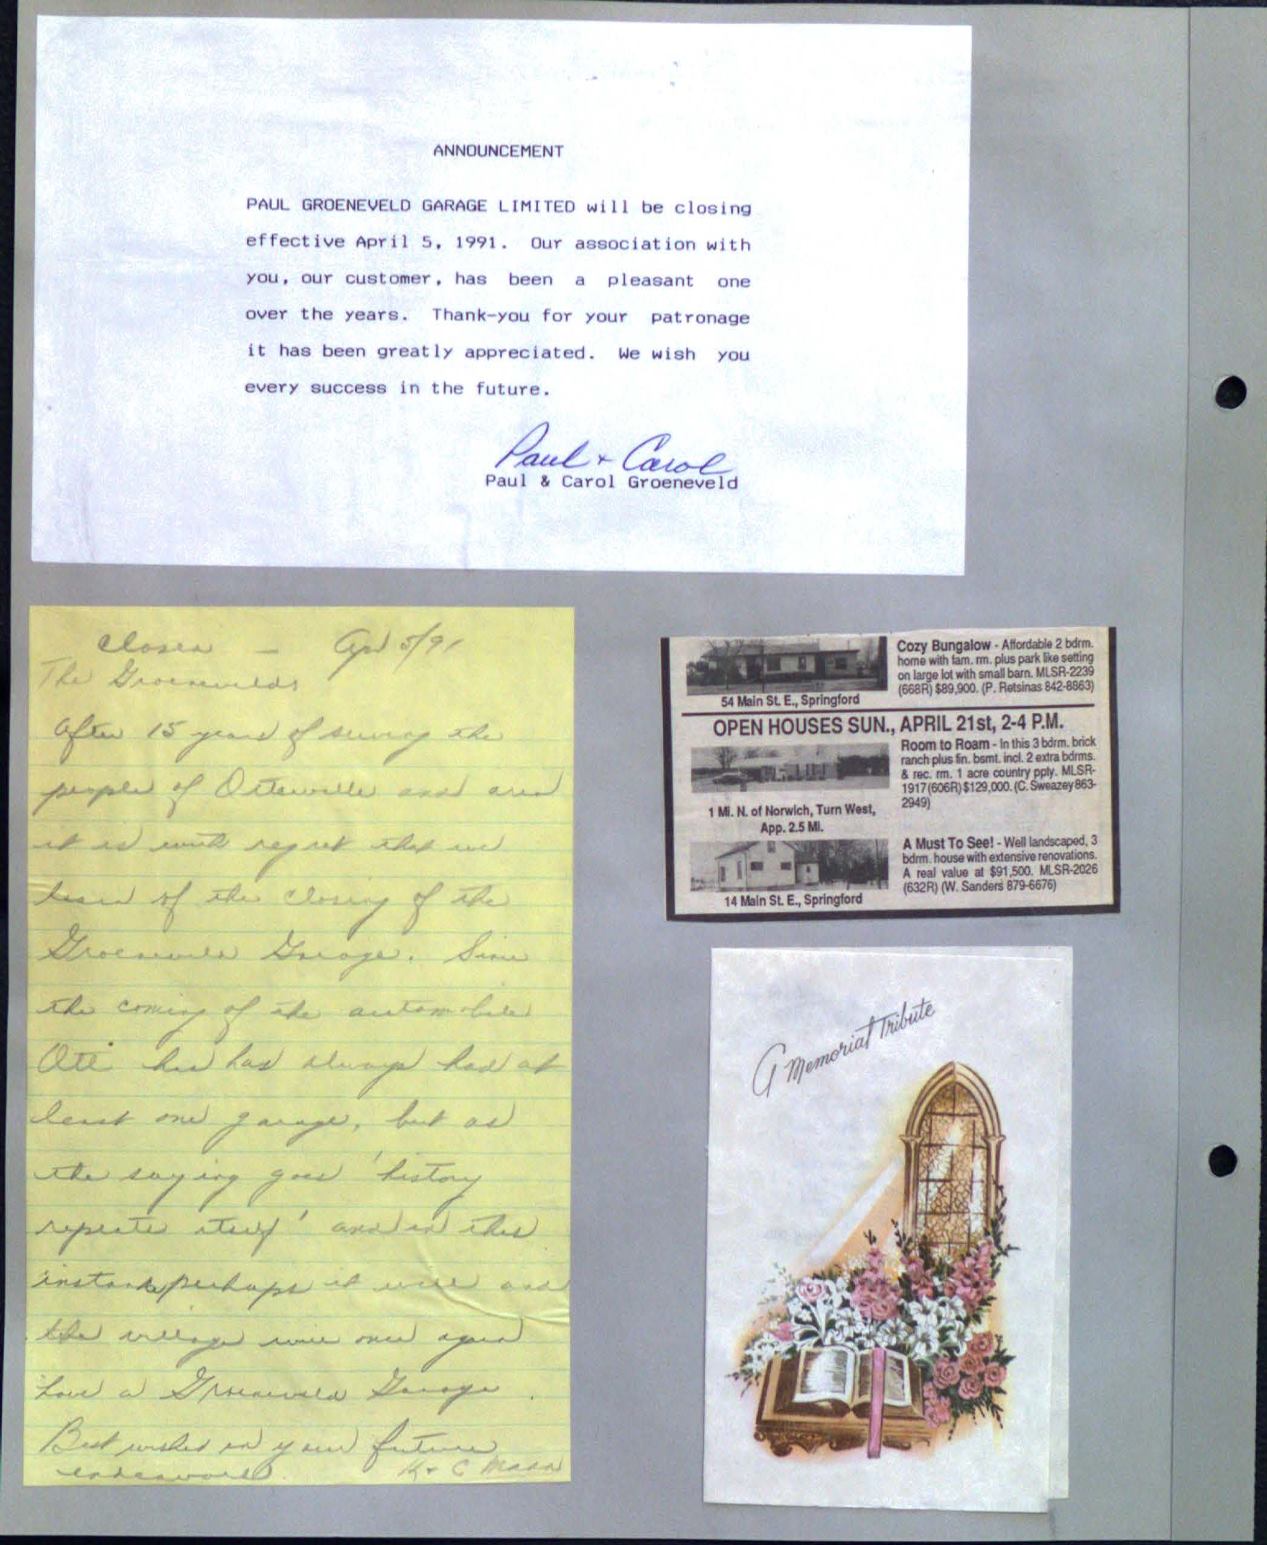 ANNOUNCEMENT
PAUL GROENEVELD GARAGE LIMITED will be closing
effective April 5, 1991. Our association with
you, our customer, has been a pleasant one
over the years. Thank-you for your patronage
it has been greatly appreciated. We wish you
every success in the future.
Paul + Carol
Paul & Carol Groeneveld
Closed - Apr 5/91
The Groenevelds
After 15 years of serving the
people of Otterville and area
it is with regret that we
learn of the closing of the
Groeneveld Garage. Since
the coming of the automobile
has always had at
least one garage, but as
the saying goes 'history
repeats itself' and in this
instance perhaps it will and
the village will once again
have a Groeneveld Garage.
Best wishes in your future
endeavors. K + C Mann
Cozy Bungalow - Affordable 2 bdrm.
home with fam. rm. plus park like setting
on large lot with small barn. MLSR-2239
(668R) $89,900. (P. Retsinas 842-8863)
54 Main St. E., Springford
OPEN HOUSES SUN., APRIL 21st, 2-4 P.M.
Room to Roam - In this 3 bdrm. brick
ranch plus fin. bsmt. incl. 2 extra bdrms.
& rec. rm. 1 acre country pply. MLSR-
1917 (606R) $129,000. (C. Sweazey 863-
2949)
1 Mi. N. of Norwich, Turn West,
App. 2.5 Mi.
A Must To See! - Well landscaped, 3
bdrm. house with extensive renovations.
A real value at $91,500. MLSR-2026
(632R) (W. Sanders 879-6676)
14 Main St. E., Springford
A Memorial Tribute